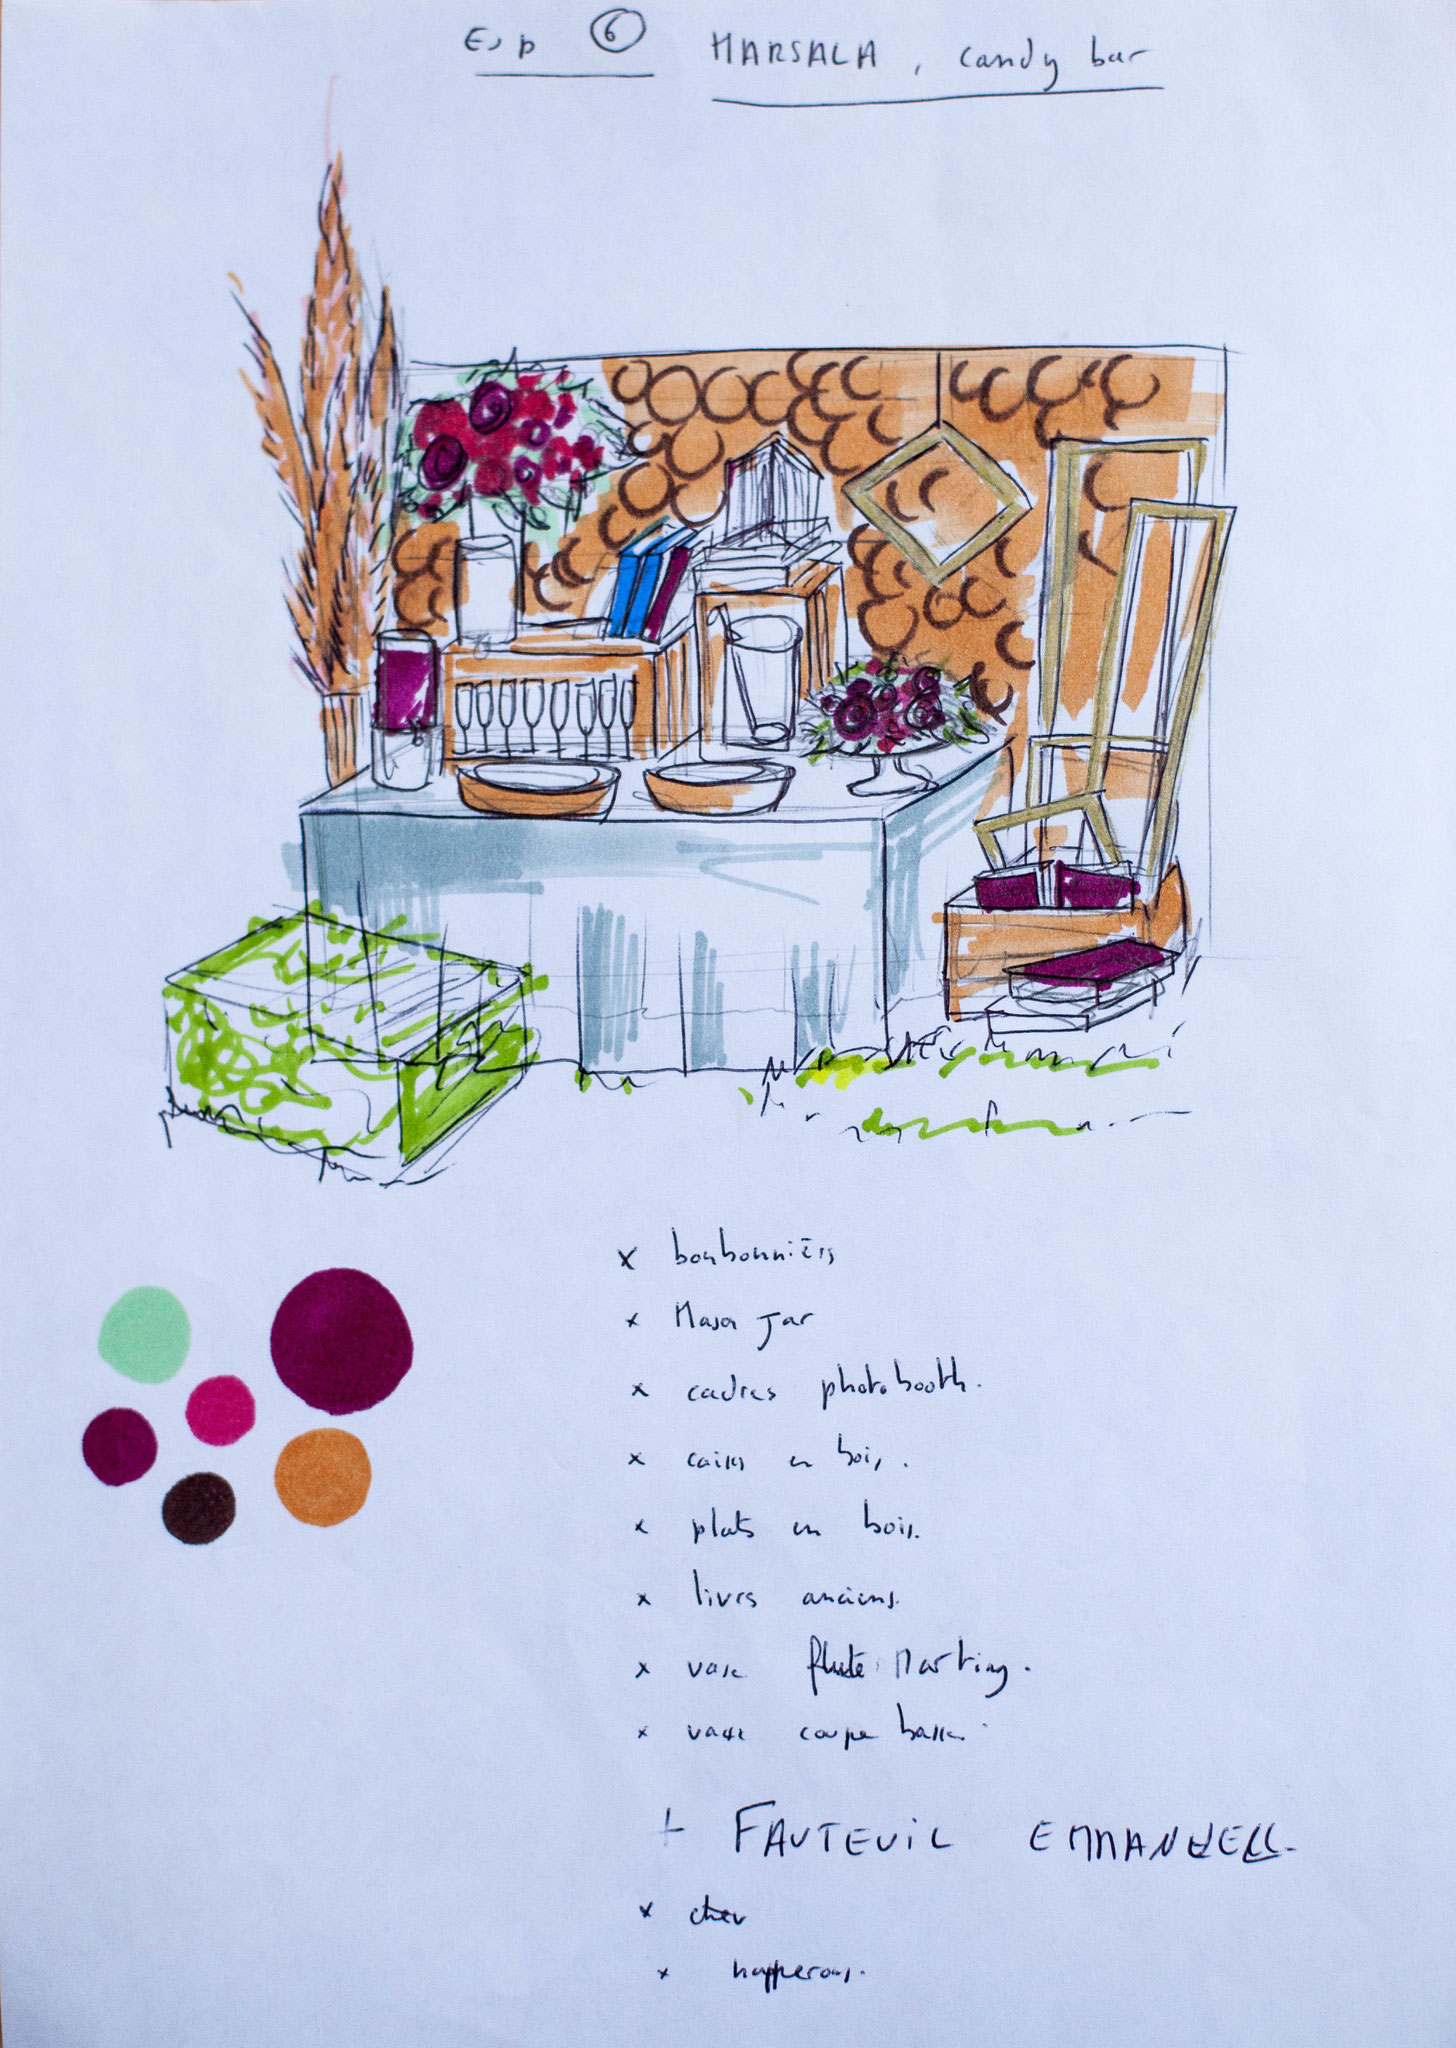 Esp 6 MARSALA, candy bar
x bonbonnières
x Mason Jar
x cadres photobooth.
x caisses en bois.
x plats en bois.
x livres anciens.
x vase flute Martiny.
x vase coupe basse.
+ FAUTEUIL EMMANUELLE.
x
x napperons.